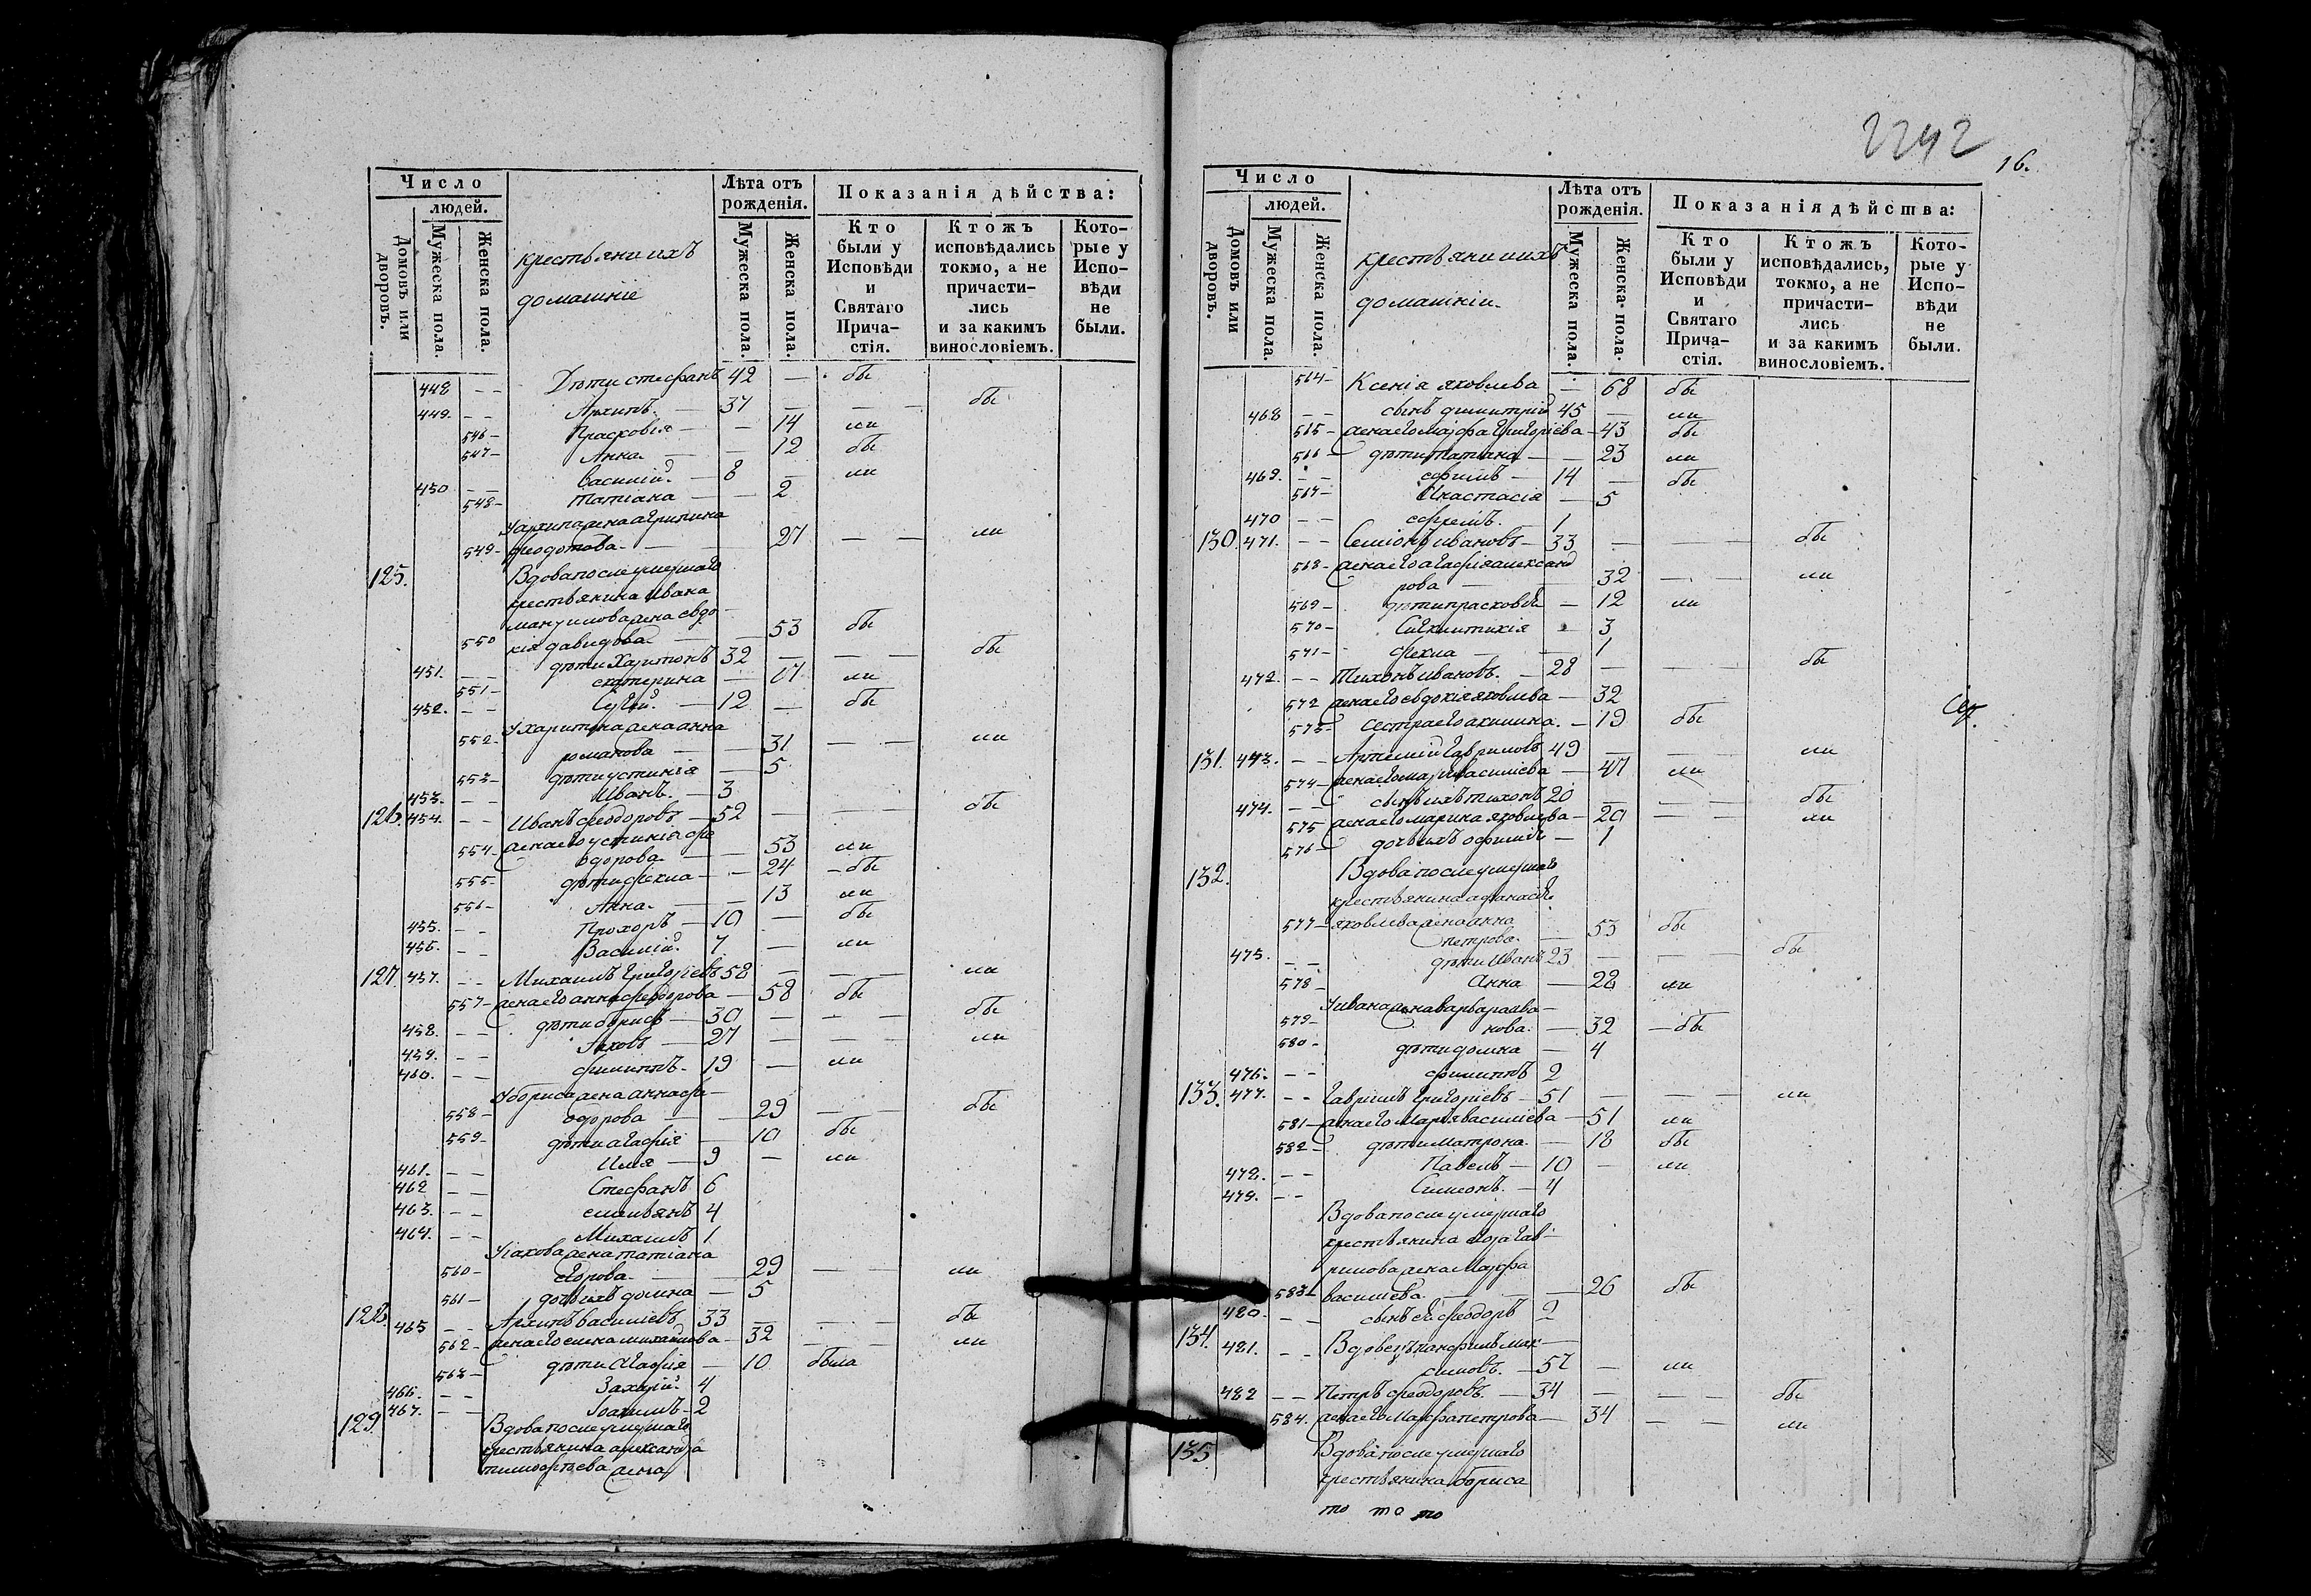 Число
людей.
Домовъ или дворовъ.
Мужеска пола.
Женска пола.
крестьяни ихъ
домашніе
Лѣта отъ
рожденія.
Мужеска пола.
Женска пола.
Показанія дѣйства:
Кто
были у
Исповѣди
и
Святаго
Прича-
стія.
Ктожъ
исповѣдались
токмо, а не
причасти-
лись
и за какимъ
винословіемъ.
Кото-
рые у
Испо-
вѣди
не
были.
448 - - Дѣти Стефанъ 42 — бы
449. - - Архипъ. — 37 — — — бы
546 - Прасковія — — 14 ли
547 - Анна — — 12 бы
450 - - Василій. — 8 — ли
548 - Татіана — — 2
У архипа жена агрипина
549 - феодотова — — 27 — — ли
125. Вдова после умершаго
крестьянина Ивана
жена евдо-
550 кія давидова — — 53 бы
451. - - дѣти Харитонъ 32 — — — бы
551 - екатерина — 17 ли
452. - - Сергѣй. — 12 — бы
552 - У харитона жена анна
романова — — 31 — — ли
553 - дѣти устинія — 5
453. - - Иванъ. — 3
126. 454. - - Иванъ феодоровъ — 52 — — — бы
554 - жена его устинія фе
одорова — — 53 ли
555 - дѣти фекла — — 24 — бы
556 - Анна. — — 13 ли
455. - - Прохоръ — 10 — бы
456. - - Василій. 7 — ли
127. 457. - - Михаилъ Григорьевъ 58 — — — ли
557 - жена его анна феодорова — 58 бы
458. - - дѣти борисъ — 30 — — — бы
459. - - Іаковъ — 27 — — — ли
460. - - филиппъ. — 19 — ли
У бориса жена анна фе-
558 - одорова — — 29 — — бы
559 - дѣти агафія — 10 бы
461. - - Илія — 9 — ли
462 - - Стефанъ 6
463. - - емельянъ 4
464. - - Михаилъ 1
У іакова жена татіана
560 - егорова — — 29 — — ли
561 - дочь ихъ домна — 5
128. 465 - - Архипъ василіевъ 33 — — — бы
562 - жена его елена михайлова — 32 — — ли
563 - дѣти Агафія — 10 была
466. - - Захарій. 4
467. - - Іоакимъ — 2
129. Вдова после умершаго
крестьянина александра
тимофѣева жена
2242
16.
Число
людей.
Домовъ или дворовъ.
Мужеска пола.
Женска пола.
крестьяни ихъ
домашніи
Лѣта отъ
рожденія.
Мужеска пола.
Женска пола.
Показанія дѣйства:
Кто
были у
Исповѣди
и
Святаго
Прича-
стія.
Ктожъ
исповѣдались,
токмо, а не
причасти-
лись
и за какимъ
винословіемъ.
Кото-
рые у
Испо-
вѣди
не
были.
564 - Ксенія яковлева — 68 бы
468 - - сынъ димитрій 45 — ли
565 - жена его Марфа Григоріева — 43 бы
566 - дѣти татіана — — 23 ли
469. - - ефимъ — 14 — бы
567 - Анастасія — 5
470 - - ефремъ. 1
130. 471. - - Семіонъ ивановъ — 33 — — — бы
568 - жена его агафія александ
рова — — 32 — — ли
569 - дѣти прасковія — 12 ли
570 - Сигклитикія 3
571 - фекла — — 1
472. - - Тихонъ ивановъ. — 28 — — — бы
572 жена его евдокія яковлева — 32
573 - сестра его акилина. — 19 бы
131. 473. - - Артемій Гавриловъ 49 — — ли
574 - жена его марія василіева — 47 ли
474. - - сынъ ихъ тихонъ 20 — — — бы
575 жена его марина яковлева — 20 — — ли
576 - дочь ихъ — 1
132. Вдова после умершаго
крестьянина афанасія
577 - яковлева жена анна
петрова. — 53 бы
475. - - дѣти Иванъ 23 — — — бы
578 - Анна — 28 ли
У ивана жена варвара ива-
579 - нова. — 32 — бы
580 - дѣти домна — 4
476. - - филиппъ 2
133. 477. - - Гавріилъ Григоріевъ — 51 — — — ли
581 - жена его Марія василіева — 51 ли
582 - дѣти Матрона — 18 бы
478. - - Павелъ — 10 — ли
479. - - Симеонъ. — 4
Вдова после умершаго
крестьянина Гав-
рилова жена Марфа
583 - василіева — — 26 бы
480. - - сынъ ея феодоръ 2
134. 481. - - Вдовецъ панфилъ мак-
симовъ. — 57 — ли
482 - - Петръ феодоровъ. — 34 — — — бы
584. жена его Марфа петрова — 34 — — ли
135 Вдова после умершаго
крестьянина бориса
то то то